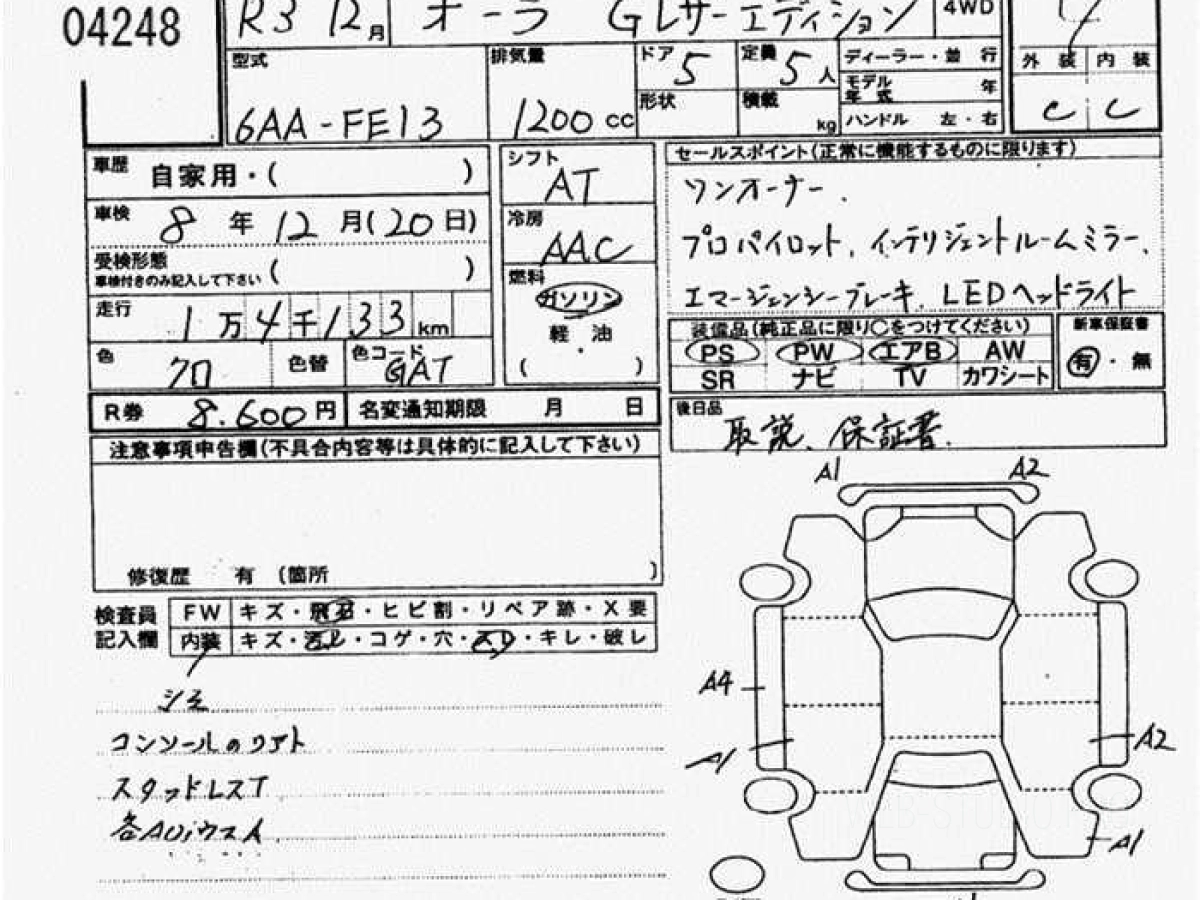 04248
R3 12月 オーラ Gレザーエディション 4WD
型式 6AA-FE13
排気量 1200 cc
ドア 5
定員 5人
形状
積載 kg
ディーラー・並 行
モデル年式 年
ハンドル 左・右
外装 内装
C C
車歴 自家用・( )
車検 8年 12月(20日)
受検形態 ( )
車検付きのみ記入して下さい
走行 1万4千133km
色 クロ 色替 色コード GAT
シフト AT
冷房 AAC
燃料 ガソリン
軽油
・
( )
セールスポイント(正常に機能するものに限ります)
ワンオーナー.
プロパイロット、インテリジェントルームミラー、
エマージェンシーブレーキ、LEDヘッドライト
装備品(純正品に限り〇をつけてください)
PS PW エアB AW
SR ナビ TV カワシート
新車保証書
有・無
R券 8,600円 名変通知期限 月 日
後日品 取説、保証書.
注意事項申告欄(不具合内容等は具体的に記入して下さい)
修復歴 有 (箇所 )
検査員記入欄
FW キズ・飛石・ヒビ割・リペア跡・X要
内装 キズ・汚し・コゲ・穴・スレ・キレ・破し
シミ
コンソールのリアト
スタッドレスT
各AUjウスA
A1 A2
A4
A1 A2
A1